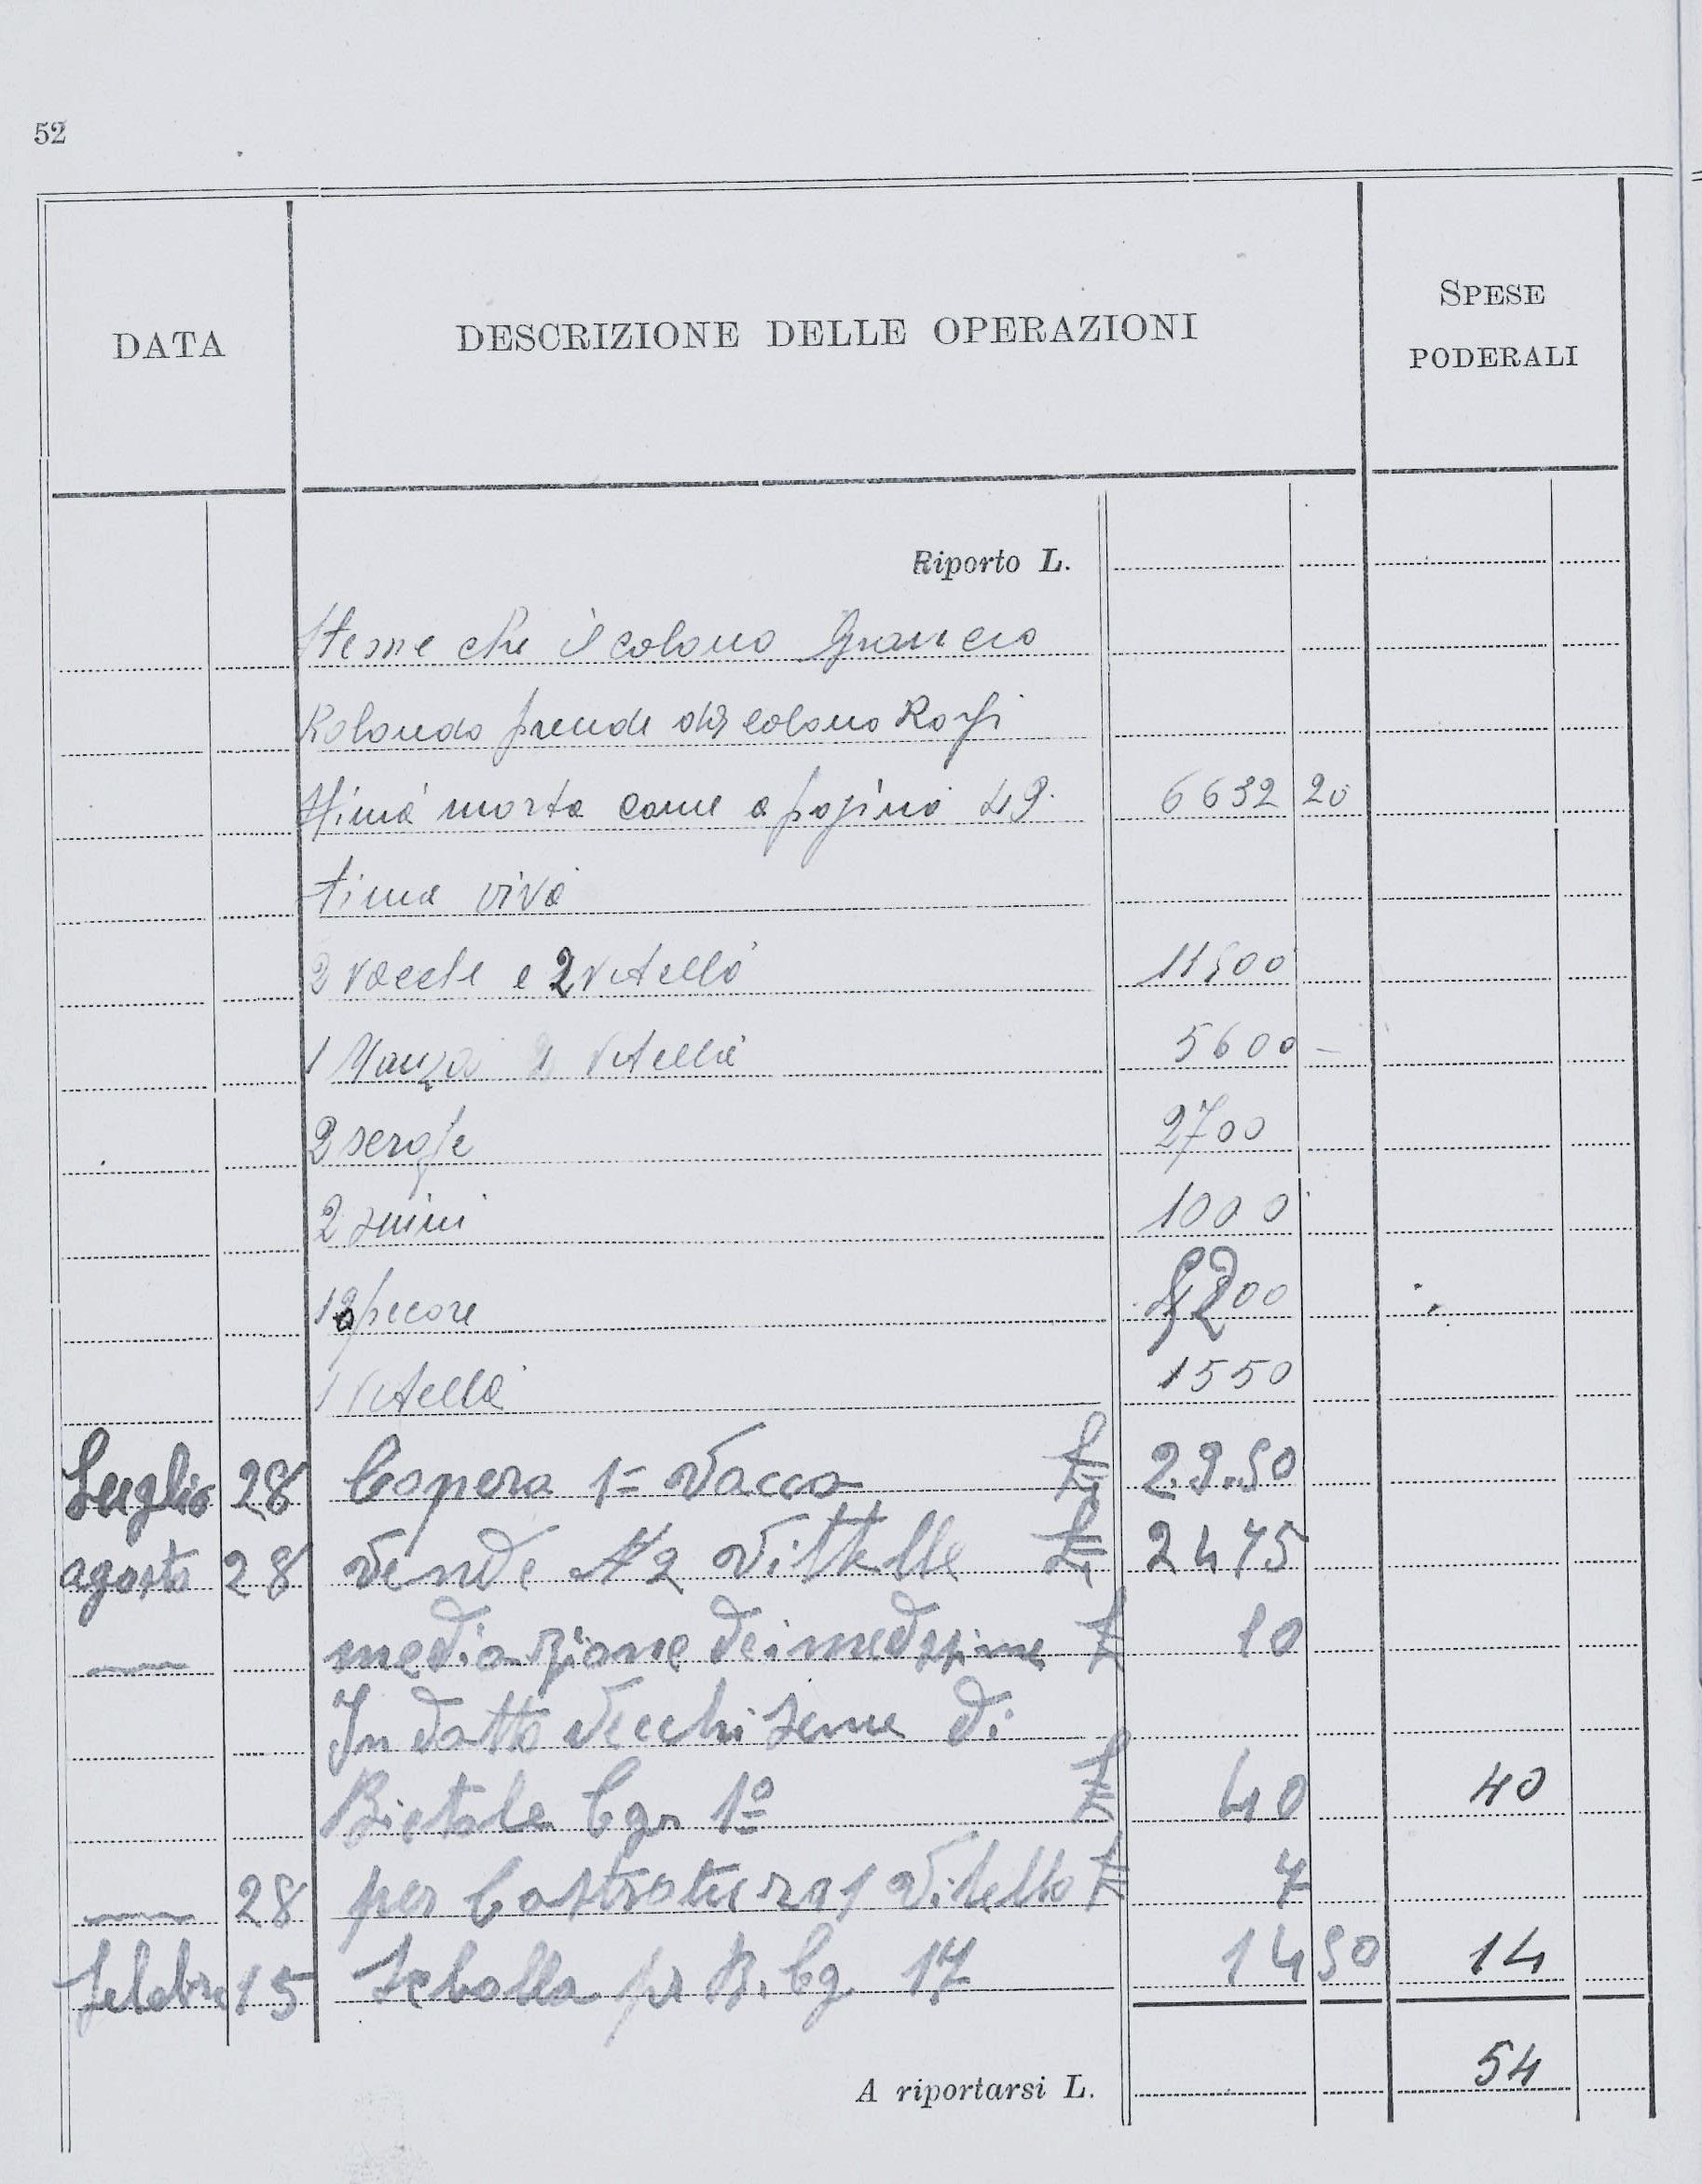 52
DATA DESCRIZIONE DELLE OPERAZIONI SPESE PODERALI
Riporto L.
che il colono
Rolando prende dal colono
morta come a pagina 49 6632 20
viva
2 vacche e 2 vitella 11500
1 Manza vitella 5600 -
2 scrofe 2700
2 suini 1000
pecore
1 vitella 1550
Luglio 28 Copera 1= Vacca £ 2.9.50
agosto 28 Vende N 2 Vittelle £ 2475
mediazione dei £ 10
In datto Vecchi Seme di
Bietole Cgr 1º £ 40 40
28 per Castratura 1 Vitello £ 7
15 pr B. Cg 17 14 50 14
A riportarsi L. 54